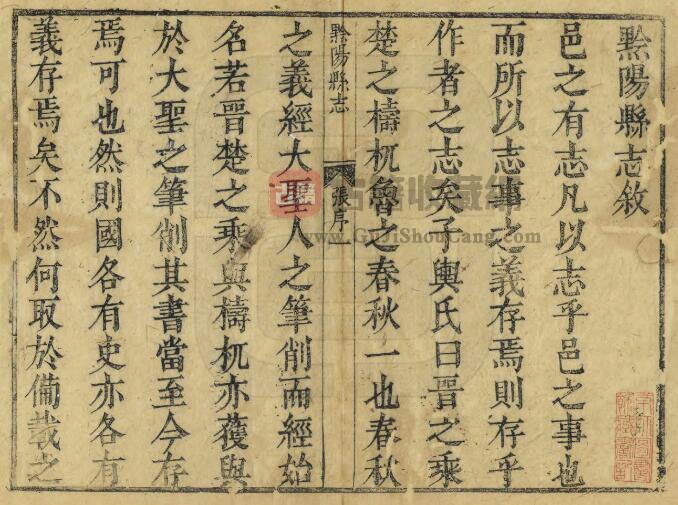 黔陽縣志敘
邑之有志凡以志乎邑之事也
而所以志事之義存焉則存乎
作者之志矣子輿氏曰晉之乘
楚之檮杌魯之春秋一也春秋
黔陽縣志
張序
之義經大聖人之筆削而經始
名若晉楚之乘與檮杌亦獲與
於大聖之筆削其書當至今存
焉可也然則國各有史亦各有
義存焉矣不然何取於備載之
古籍收藏網
www.GuJiShouCang.com